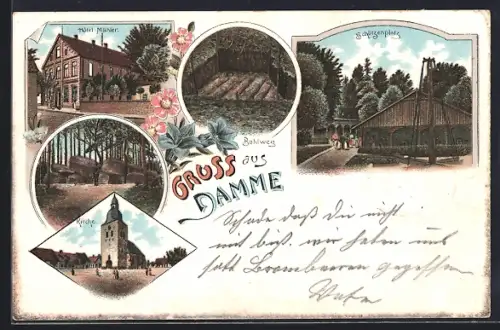 Hôtel Münter.
Bohlweg
Schützenplatz
Kirche
GRUSS aus
DAMME
Schade daß Du nicht
mit bist. wir haben uns
satt Brombeeren gegessen